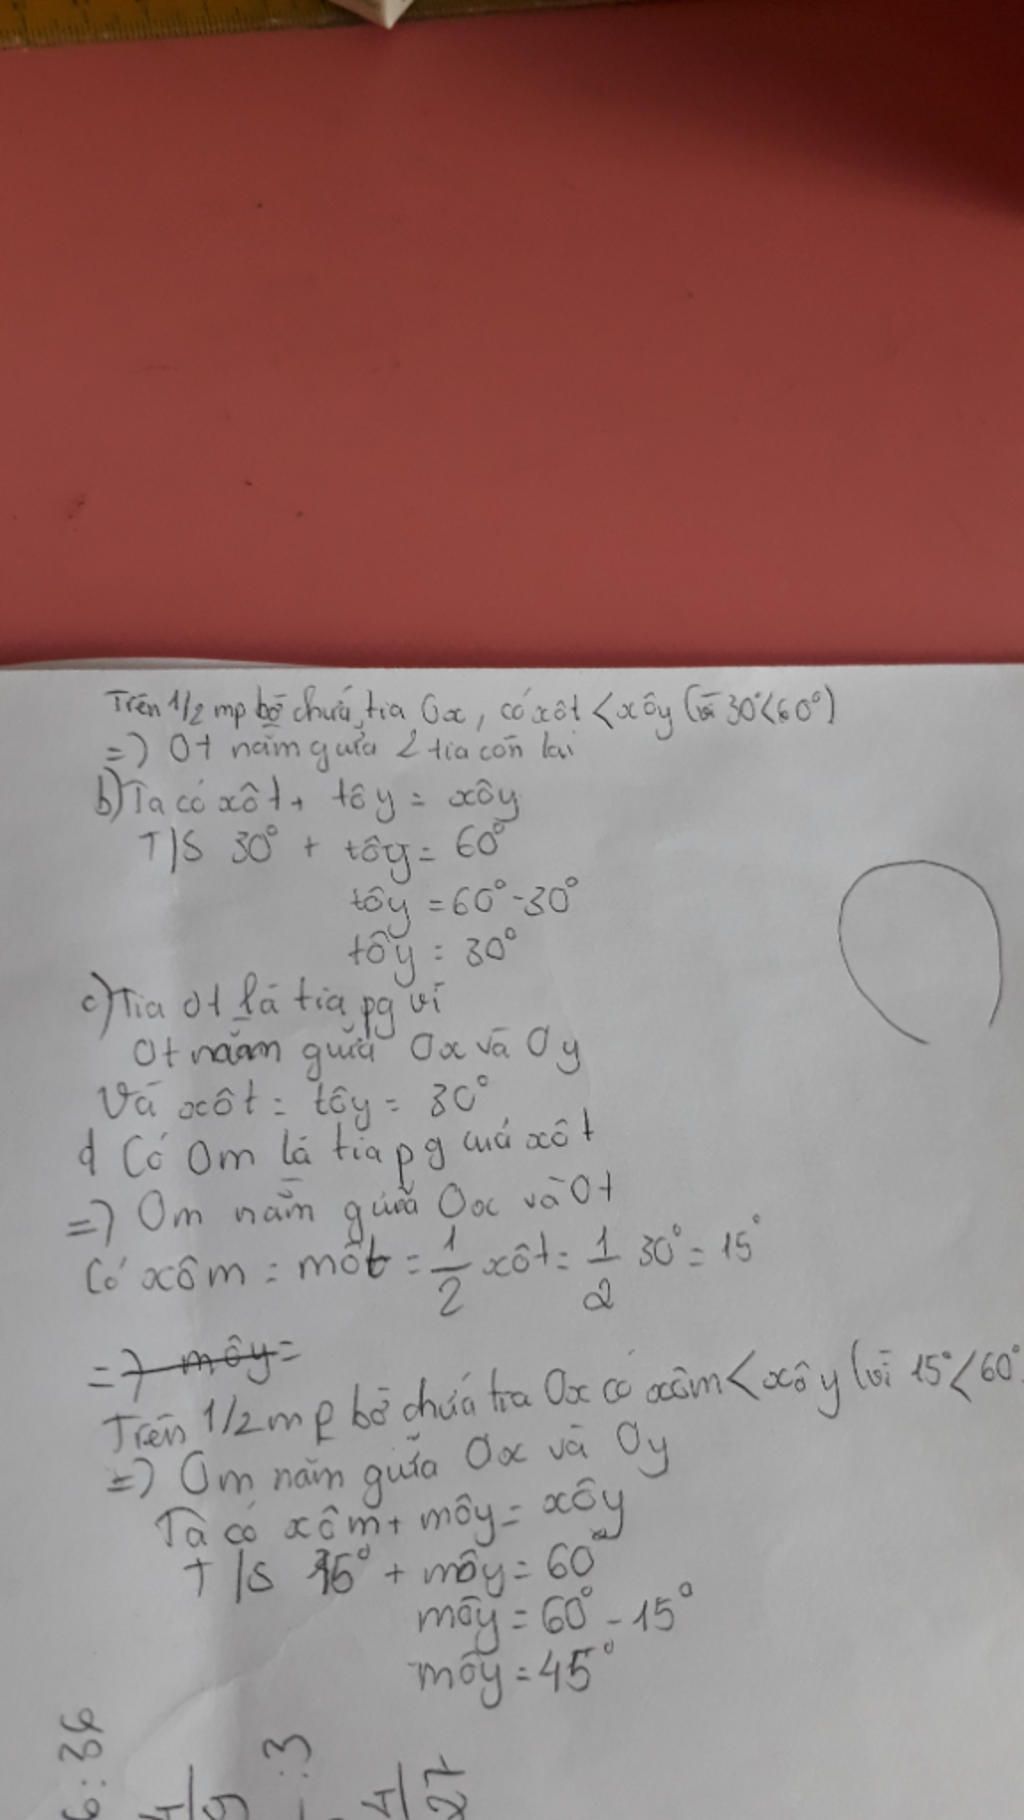 Trên 1/2 mp bờ chứa tia Ox, có xôt < xôy (vì 30° < 60°)
=) Ot nằm giữa 2 tia còn lại
b) Ta có xôt + tôy = xôy
T/S 30° + tôy = 60°
tôy = 60° - 30°
tôy = 30°
c) Tia Ot là tia pg vì
Ot nằm giữa Ox và Oy
Và xôt = tôy = 30°
d Có Om là tia pg của xôt
=) Om nằm giữa Ox và Ot
Có xôm = môt = 1/2 xôt = 1/2 30° = 15°
=) môy =
Trên 1/2 mp bờ chứa tia Ox có xôm < xôy (vì 15° < 60°
=) Om nằm giữa Ox và Oy
Ta có xôm + môy = xôy
T/S 15° + môy = 60°
môy = 60° - 15°
môy = 45°
: 36
: 3
4/27